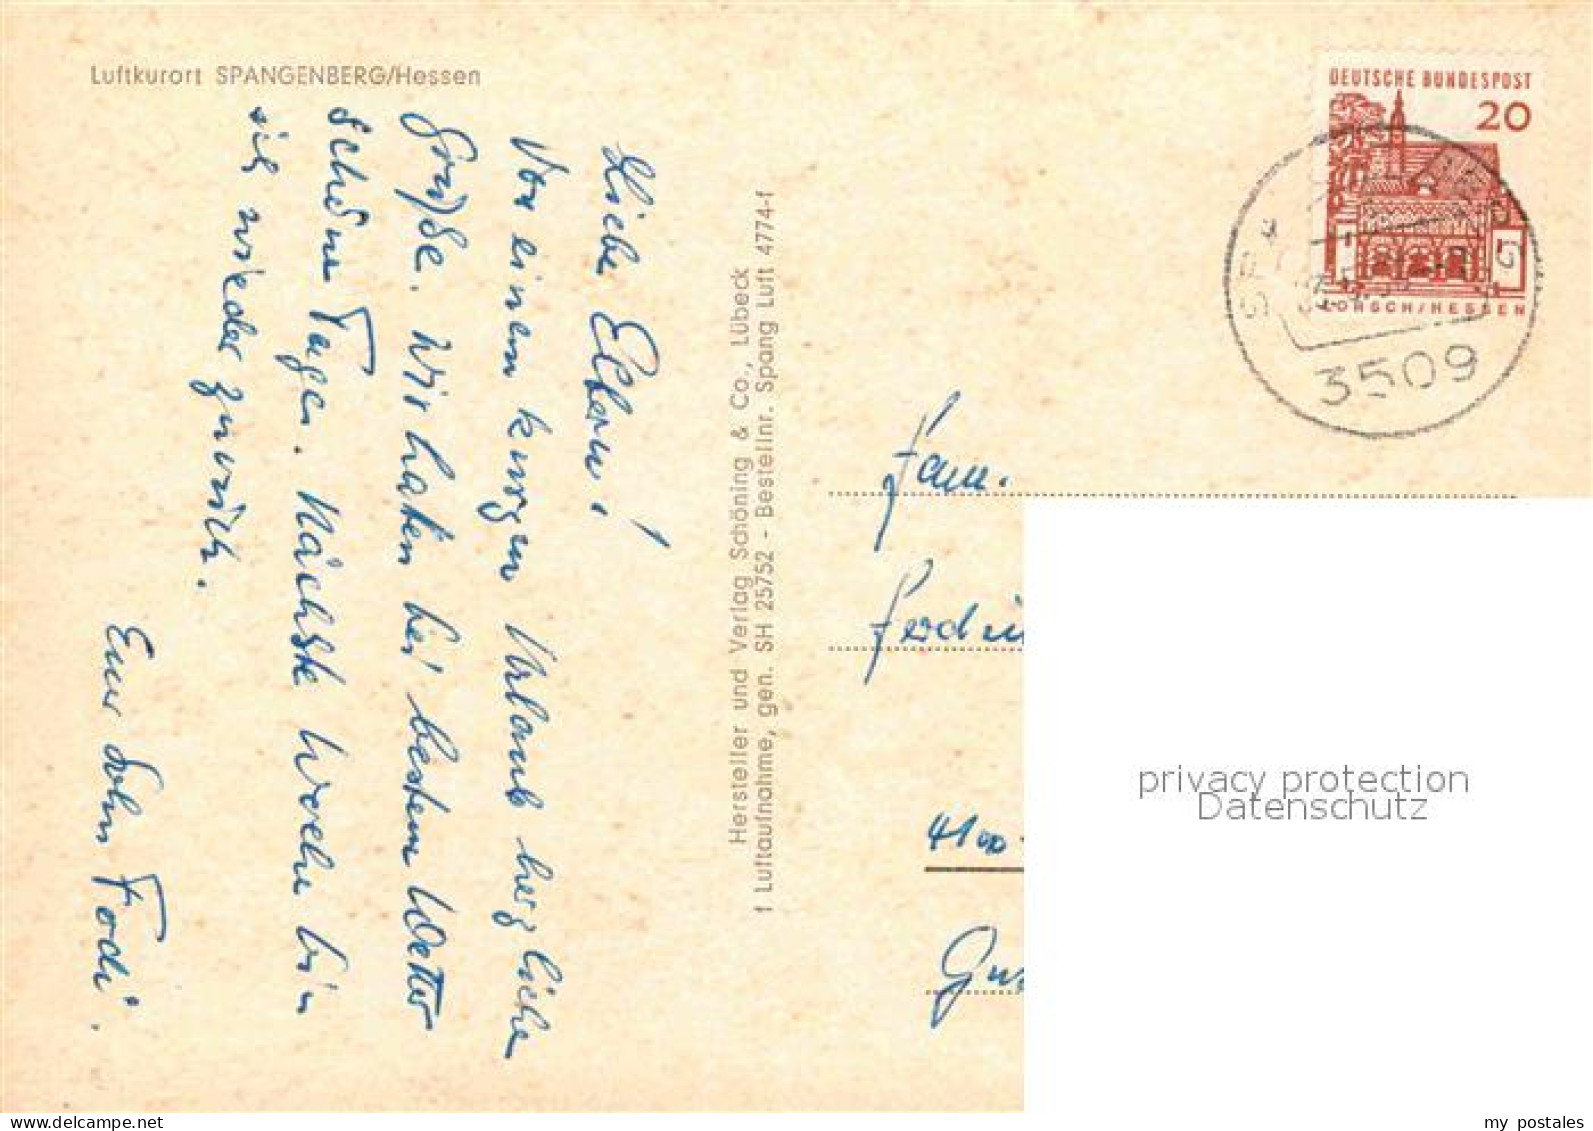 Luftkurort SPANGENBERG/Hessen
Liebe Eltern!
Von einem kurzen Urlaub herzliche
Grüße. Wir haben bei bestem Wetter
schöne Tage. Nächste Woche bin
ich wieder zurück.
Euer Sohn
Hersteller und Verlag Schöning & Co., Lübeck
f Luftaufnahme, gen. SH 25752 - Bestellnr. Spang Luft 4774-f
DEUTSCHE BUNDESPOST
20
LORSCH/HESSEN
3509
Fam.
Ferdin
4100
privacy protection
Datenschutz
my postales